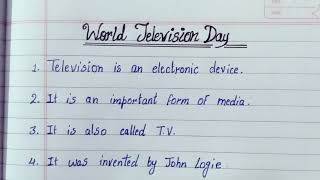 World Television Day
1. Television is an electronic device.
2. It is an important form of media.
3. It is also called T.V.
4. It was invented by John Logie